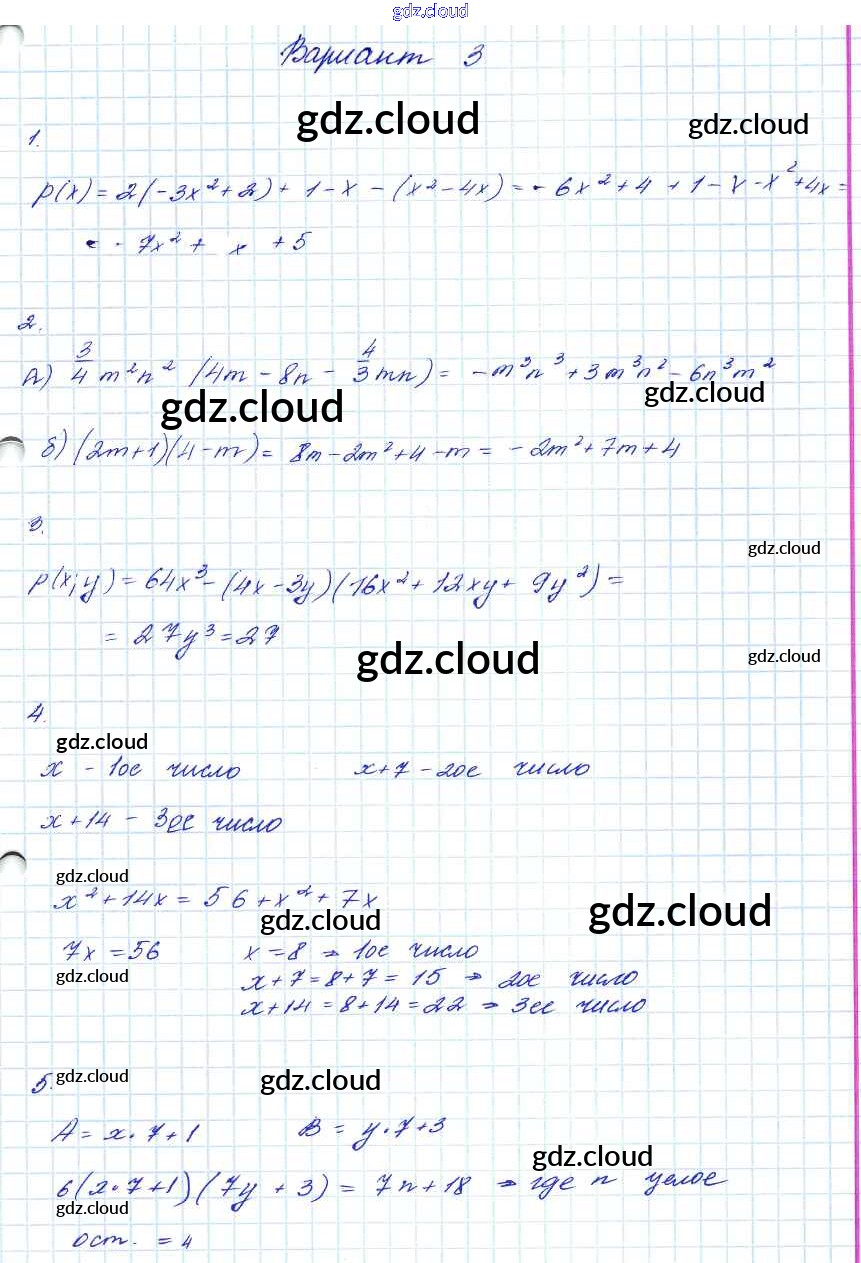 gdz.cloud
Вариант 3
gdz.cloud
gdz.cloud
1.
p(x) = 2(-3x²+2) + 1 - x - (x² - 4x) = - 6x² + 4 + 1 - x - x² + 4x =
= - 7x² + x + 5
2.
А) 3/4 m²n² (4m - 8n - 4/3 mn) = - m³n³ + 3m³n² - 6n³m²
gdz.cloud
gdz.cloud
б) (2m+1)(4-m) = 8m - 2m² + 4 - m = - 2m² + 7m + 4
3.
gdz.cloud
p(x;y) = 64x³ - (4x - 3y)(16x² + 12xy + 9y²) =
= 27y³ = 27
gdz.cloud
gdz.cloud
4.
gdz.cloud
x - 1ое число x+7 - 2ое число
x + 14 - 3ее число
gdz.cloud
x² + 14x = 56 + x² + 7x
gdz.cloud
gdz.cloud
7x = 56 x = 8 → 1ое число
gdz.cloud
x + 7 = 8 + 7 = 15 → 2ое число
x + 14 = 8 + 14 = 22 → 3ее число
5.
gdz.cloud
gdz.cloud
A = x · 7 + 1 B = y · 7 + 3
gdz.cloud
6(x · 7 + 1)(7y + 3) = 7n + 18 → где n целое
gdz.cloud
ост. = 4